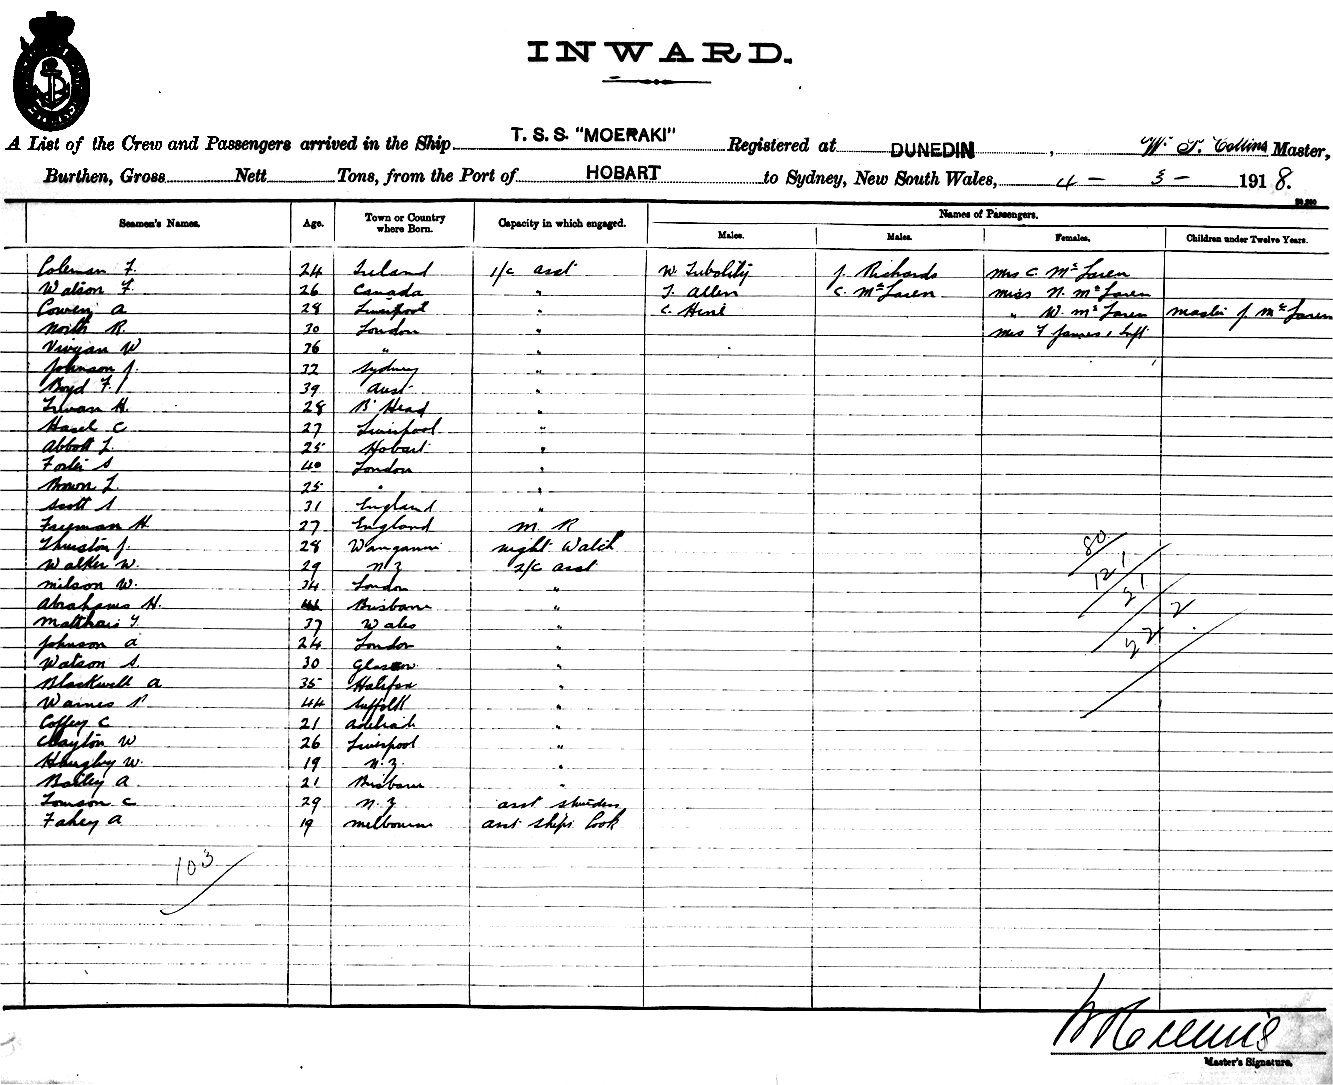 INWARD.
A List of the Crew and Passengers arrived in the Ship T. S. S. "MOERAKI" Registered at DUNEDIN, W. J. Collins Master,
Burthen, Gross Nett Tons, from the Port of HOBART to Sydney, New South Wales, 4 - 3 - 1918.
Seamen's Names. Age. Town or Country where Born. Capacity in which engaged. Names of Passengers.
Males. Males. Females. Children under Twelve Years.
Coleman F. 24 Ireland 1/c asst W. J. Richards Mrs C. McLaren
Watson F. 26 Canada " J. Allen C. McLaren Miss N. McLaren
A 28 Liverpool " C. " W. McLaren Master J. McLaren
North R. 30 London " Mrs F James &
Vivyan W 36 " "
Johnson J. 32 Sydney "
Boyd F. 39 Aust "
H. 28 B'Head "
Hasel C 27 Liverpool "
Abbott L 25 Hobart "
Foster S 40 London "
Brown L. 25 " "
Scott S 31 England "
Freeman H. 27 England M. R
Thurston J. 28 Wanganui night Watch
Walker W. 29 N Z 2/c asst
Milson W. 34 London "
Abrahams H. 44 Brisbane "
Matthais T. 37 Wales "
Johnson A 24 London "
Watson S. 30 Glasgow "
Blackwell A 35 Halifax "
Warnes P 44 Suffolk "
Coffey C 21 Adelaide "
Clayton W 26 Liverpool "
W. 19 N. Z "
Bailey A 21 Brisbane "
C 29 N. Z asst
Fahey A 19 Melbourne asst ships Cook
80
121
21
222
103
Master's Signature.